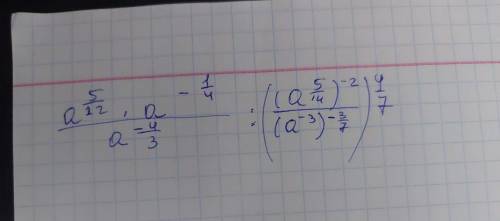 a^{5/12} · a^{-1/4} / a^{-4/3} : ((a^{5/14})^{-2} / (a^{-3})^{-3/7})^{4/7}